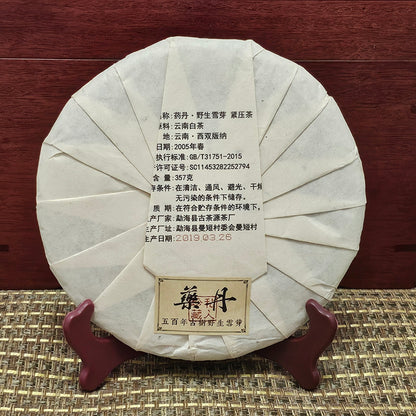 名称: 药丹·野生雪芽 紧压茶
料: 云南白茶
地: 云南·西双版纳
日期: 2005年春
执行标准: GB/T31751-2015
许可证号: SC11453282252794
含 量: 357克
存条件: 在清洁、通风、避光、干燥
无污染的条件下储存。
质 期: 在符合贮存条件的环境下,
生产厂家: 勐海县古茶源茶厂
生产厂址: 勐海县曼短村委会曼短村
生产日期: 2019.03.26
藥丹
五百年古樹野生雪芽